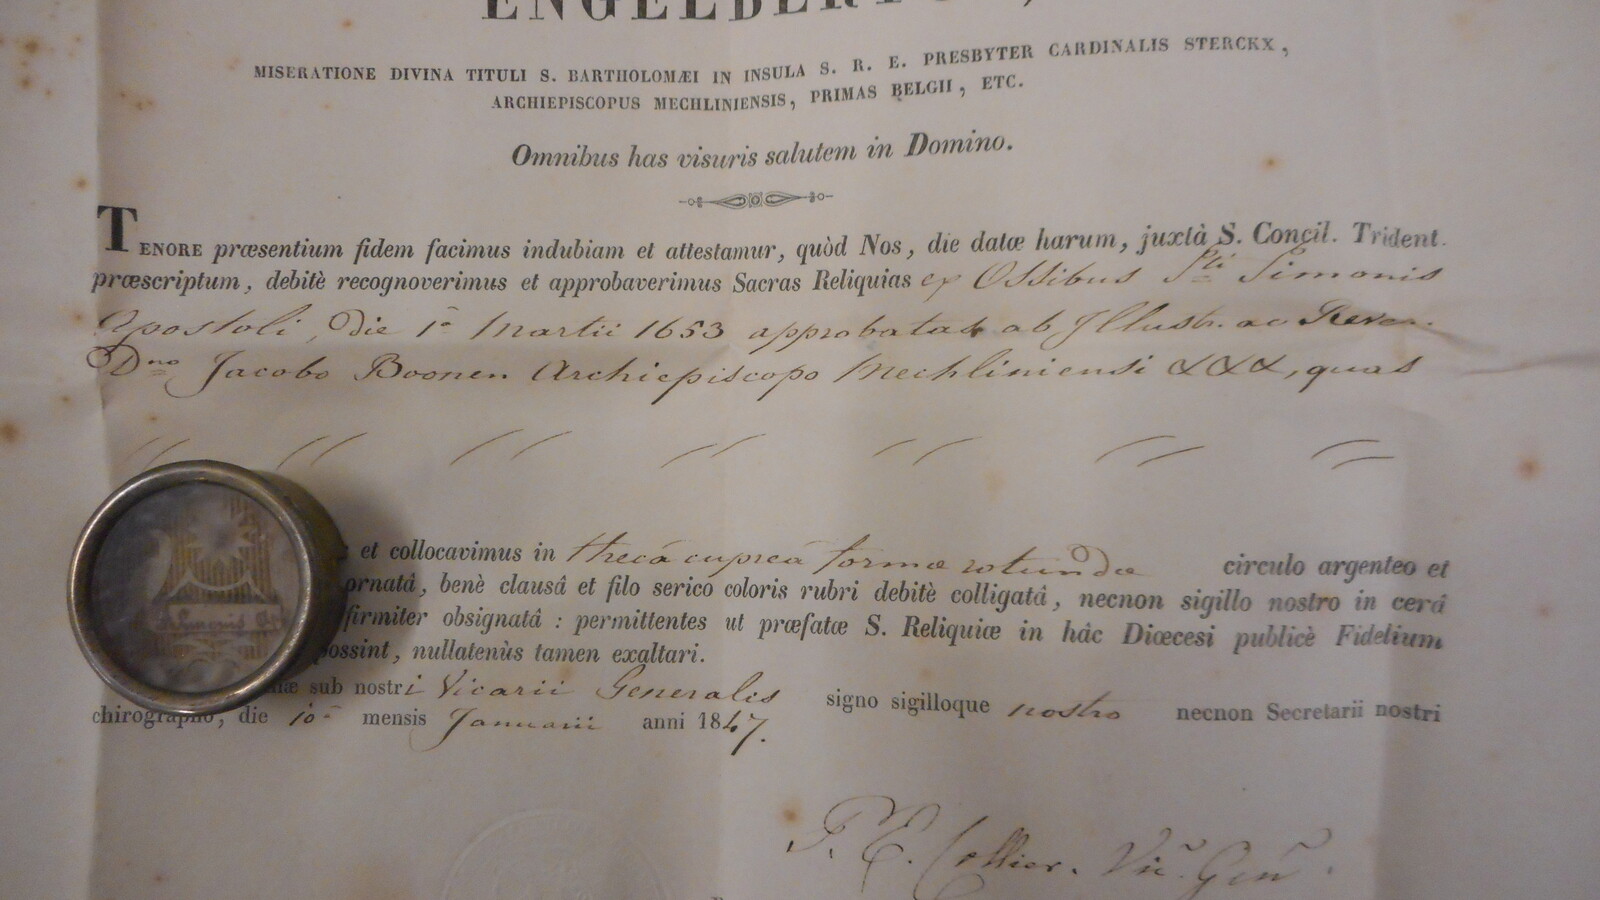 ENGELBERTUS,
MISERATIONE DIVINA TITULI S. BARTHOLOMÆI IN INSULA S. R. E. PRESBYTER CARDINALIS STERCKX,
ARCHIEPISCOPUS MECHLINIENSIS, PRIMAS BELGII, ETC.
Omnibus has visuris salutem in Domino.
TENORE præsentium fidem facimus indubiam et attestamur, quòd Nos, die datæ harum, juxtà S. Concil. Trident.
præscriptum, debitè recognoverimus et approbaverimus Sacras Reliquias ex Ossibus Sti Simonis
Apostoli, Die 1â Martii 1653 approbatas ab Illustr. ac Rever.
Dno Jacobo Boonen Archiepiscopo Mechliniensi &&&, quas
et collocavimus in thecâ cupreâ formæ rotundæ circulo argenteo et
ornatâ, benè clausâ et filo serico coloris rubri debitè colligatâ, necnon sigillo nostro in cerâ
firmiter obsignatâ : permittentes ut præfatæ S. Reliquiæ in hâc Diœcesi publicè Fidelium
possint, nullatenùs tamen exaltari.
sub nostri Vicarii Generalis signo sigilloque nostro necnon Secretarii nostri
chirographo, die 10â mensis Januarii anni 1847.
S. Simonis Ap.
P. E. Collier. Vic. Gen.